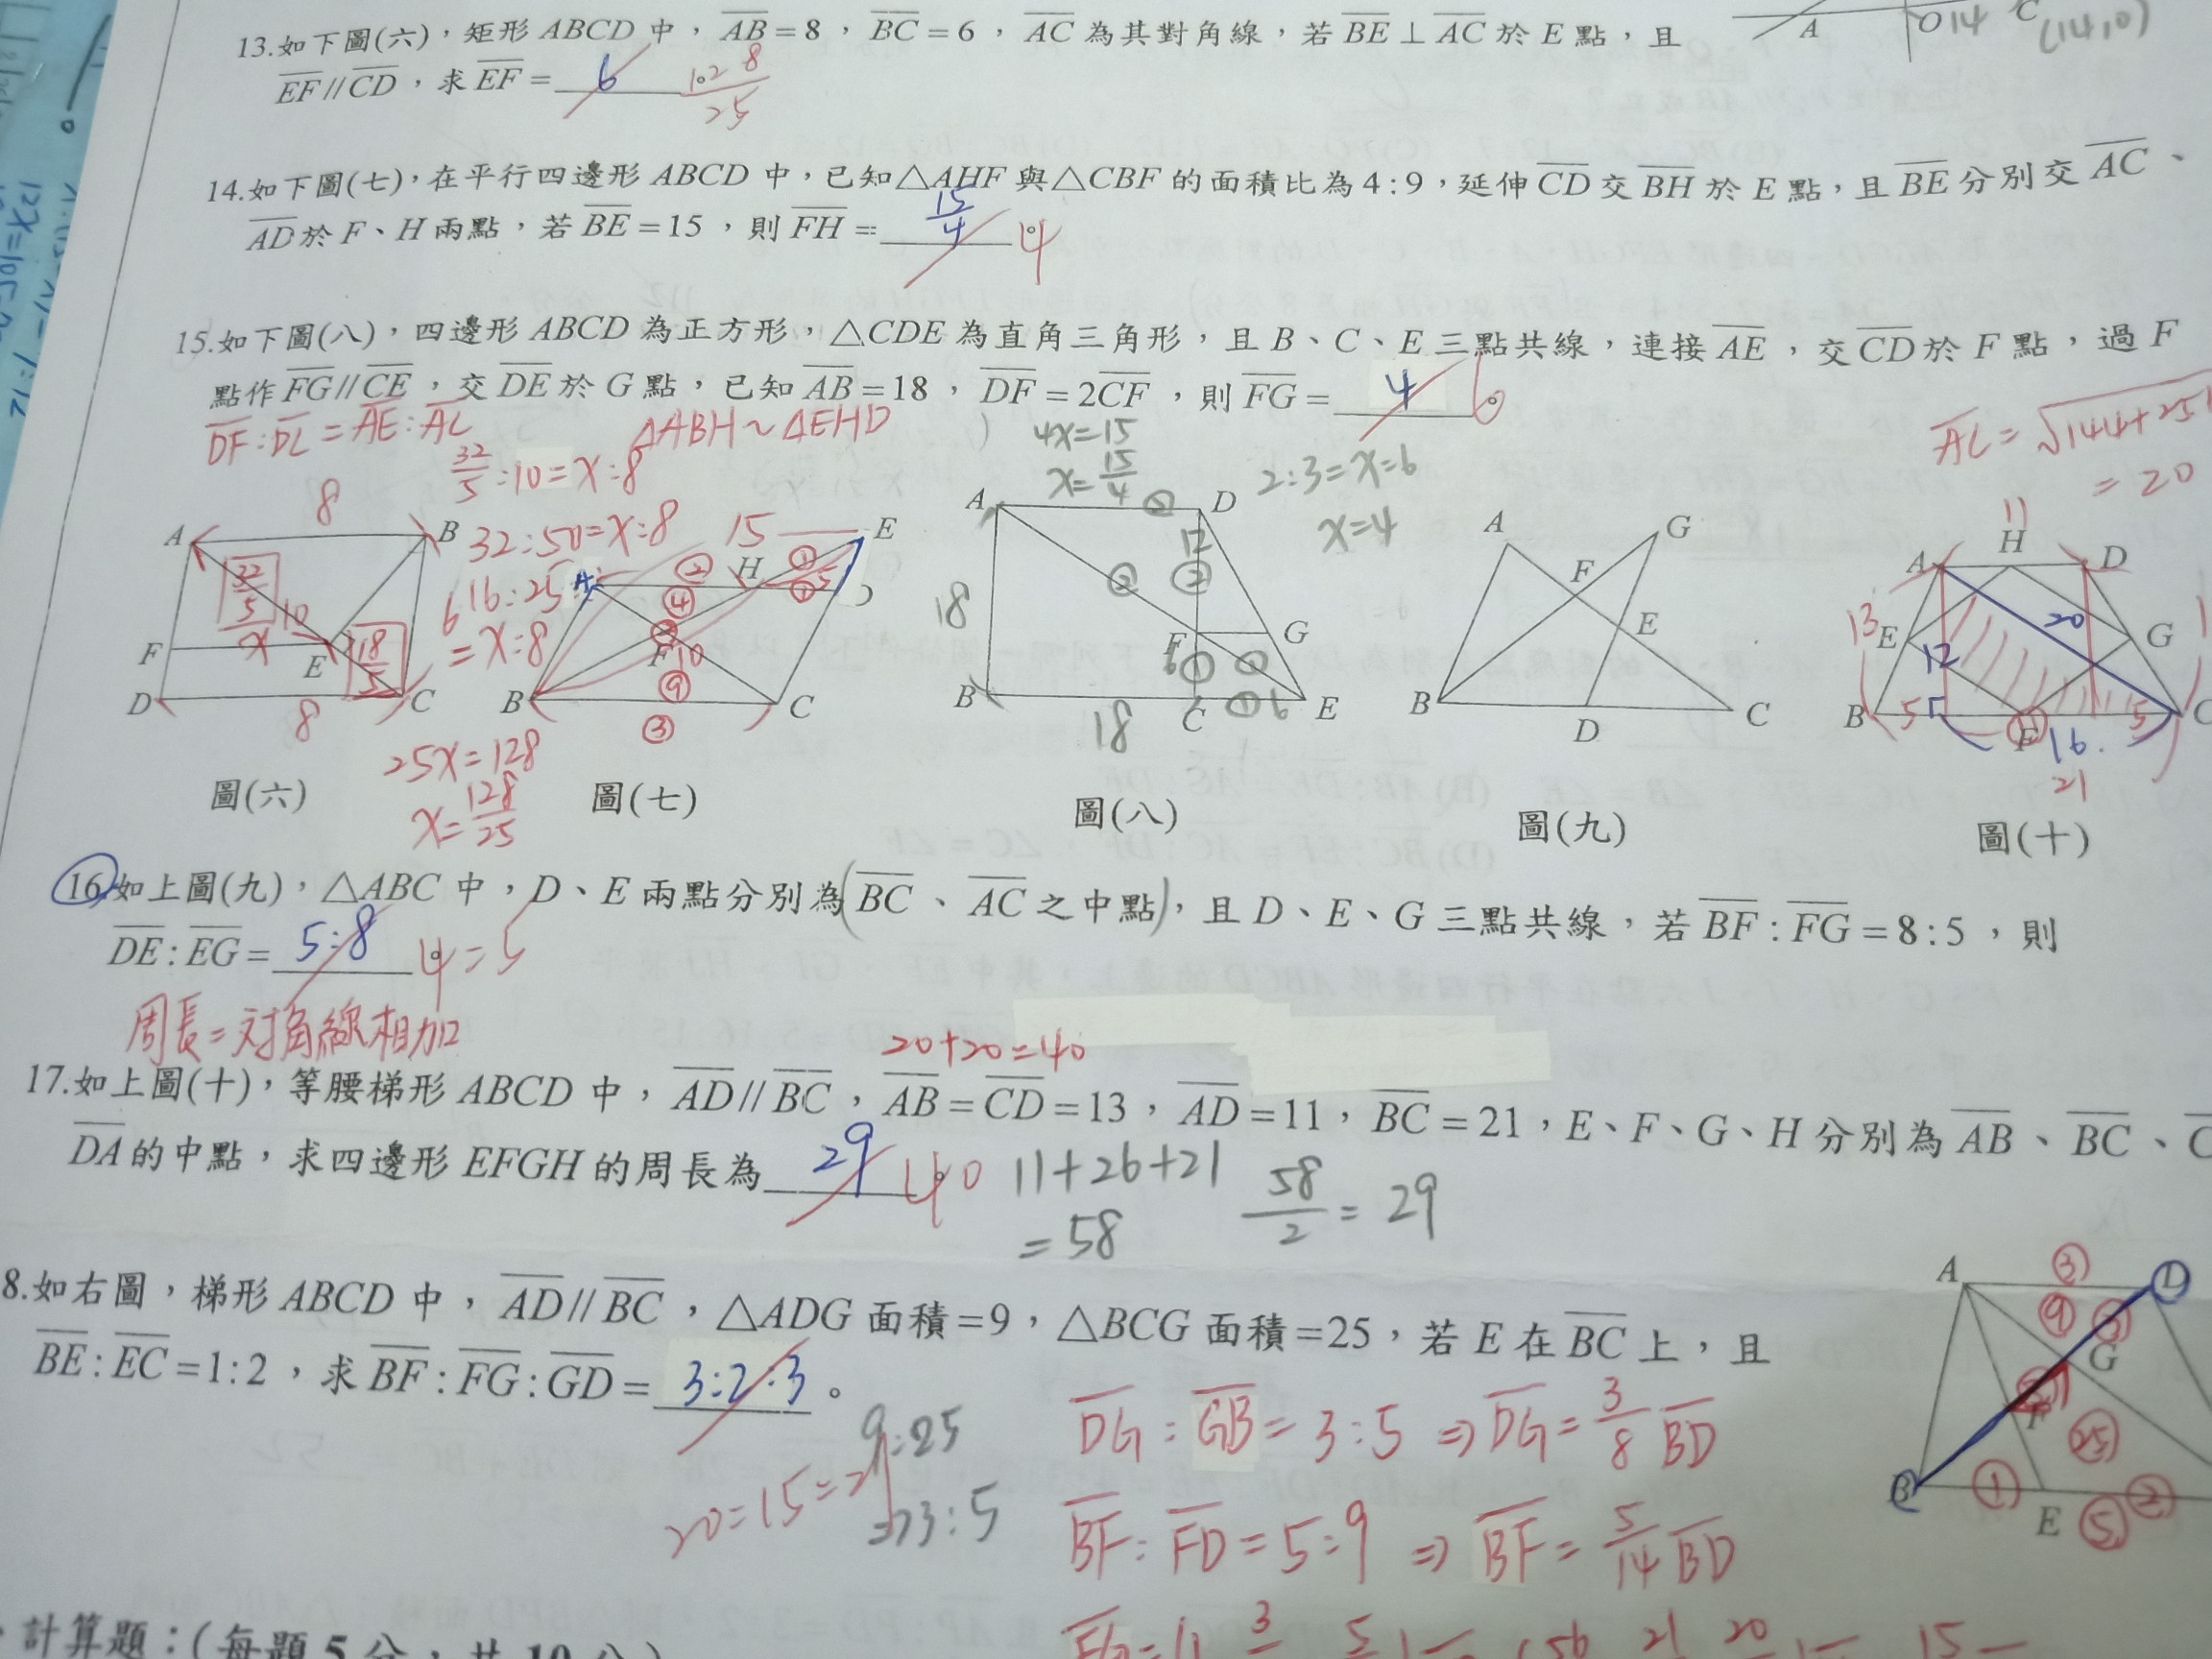 13.如下圖(六)，矩形ABCD中，AB=8，BC=6，AC為其對角線，若BE⊥AC於E點，且
EF//CD，求EF=6 128/25
A O 14 C (14,0)
14.如下圖(七)，在平行四邊形ABCD中，已知△AHF與△CBF的面積比為4:9，延伸CD交BH於E點，且BE分別交AC、
AD於F、H兩點，若BE=15，則FH=15/4。 4
15.如下圖(八)，四邊形ABCD為正方形，△CDE為直角三角形，且B、C、E三點共線，連接AE，交CD於F點，過F
點作FG//CE，交DE於G點，已知AB=18，DF=2CF，則FG=4。 6
DF:DC=AE:AC
△ABH~△EHD
32/5:10=x:8
32:50=x:8
16:25
=x:8
25x=128
x=128/25
4x=15
x=15/4
2:3=x=6
x=4
AC=√144+25
=20
A 8 B 32/5 10 x 6 F E 18/5 D 8 C
15 E A ② H ① ④ ① 5 D F 10 ⑨ B ③ C
A ② D 12 ② ② 18 F G 6 ① ① B 18 C ① 6 E
A G F E B D C
11 A H D 13 E 20 G 12 B 5 F 16 5 C 21
圖(六) 圖(七) 圖(八) 圖(九) 圖(十)
16.如上圖(九)，△ABC中，D、E兩點分別為(BC、AC之中點)，且D、E、G三點共線，若BF:FG=8:5，則
DE:EG=5:8。 4=5
周長=対角線相加
20+20=40
17.如上圖(十)，等腰梯形ABCD中，AD//BC，AB=CD=13，AD=11，BC=21，E、F、G、H分別為AB、BC、C
DA的中點，求四邊形EFGH的周長為29。 40
11+26+21
=58
58/2=29
8.如右圖，梯形ABCD中，AD//BC，△ADG面積=9，△BCG面積=25，若E在BC上，且
BE:EC=1:2，求BF:FG:GD=3:2:3。
9:25
=>3:5
20=15=21
DG:GB=3:5⇒DG=3/8BD
BF:FD=5:9⇒BF=5/14BD
A ③ D ⑨ ③ G F ㉕ B ① E ⑤ ②
計算題：(每題5分，共10分)